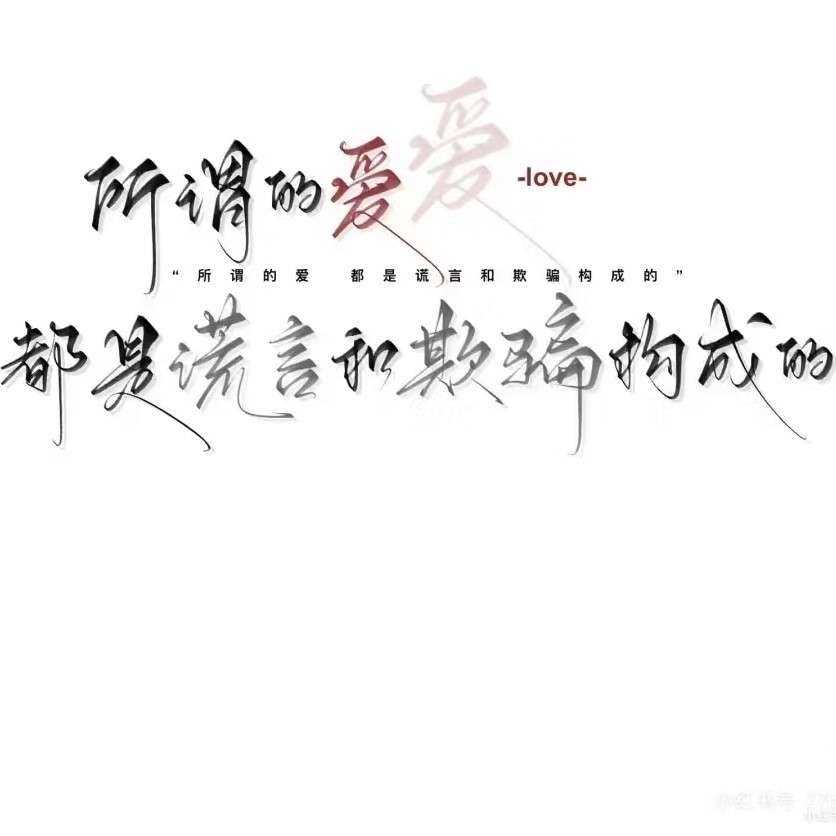 所谓的爱爱 -love-
“所谓的爱 都是谎言和欺骗构成的”
都是谎言和欺骗构成的
小红书号
小红书